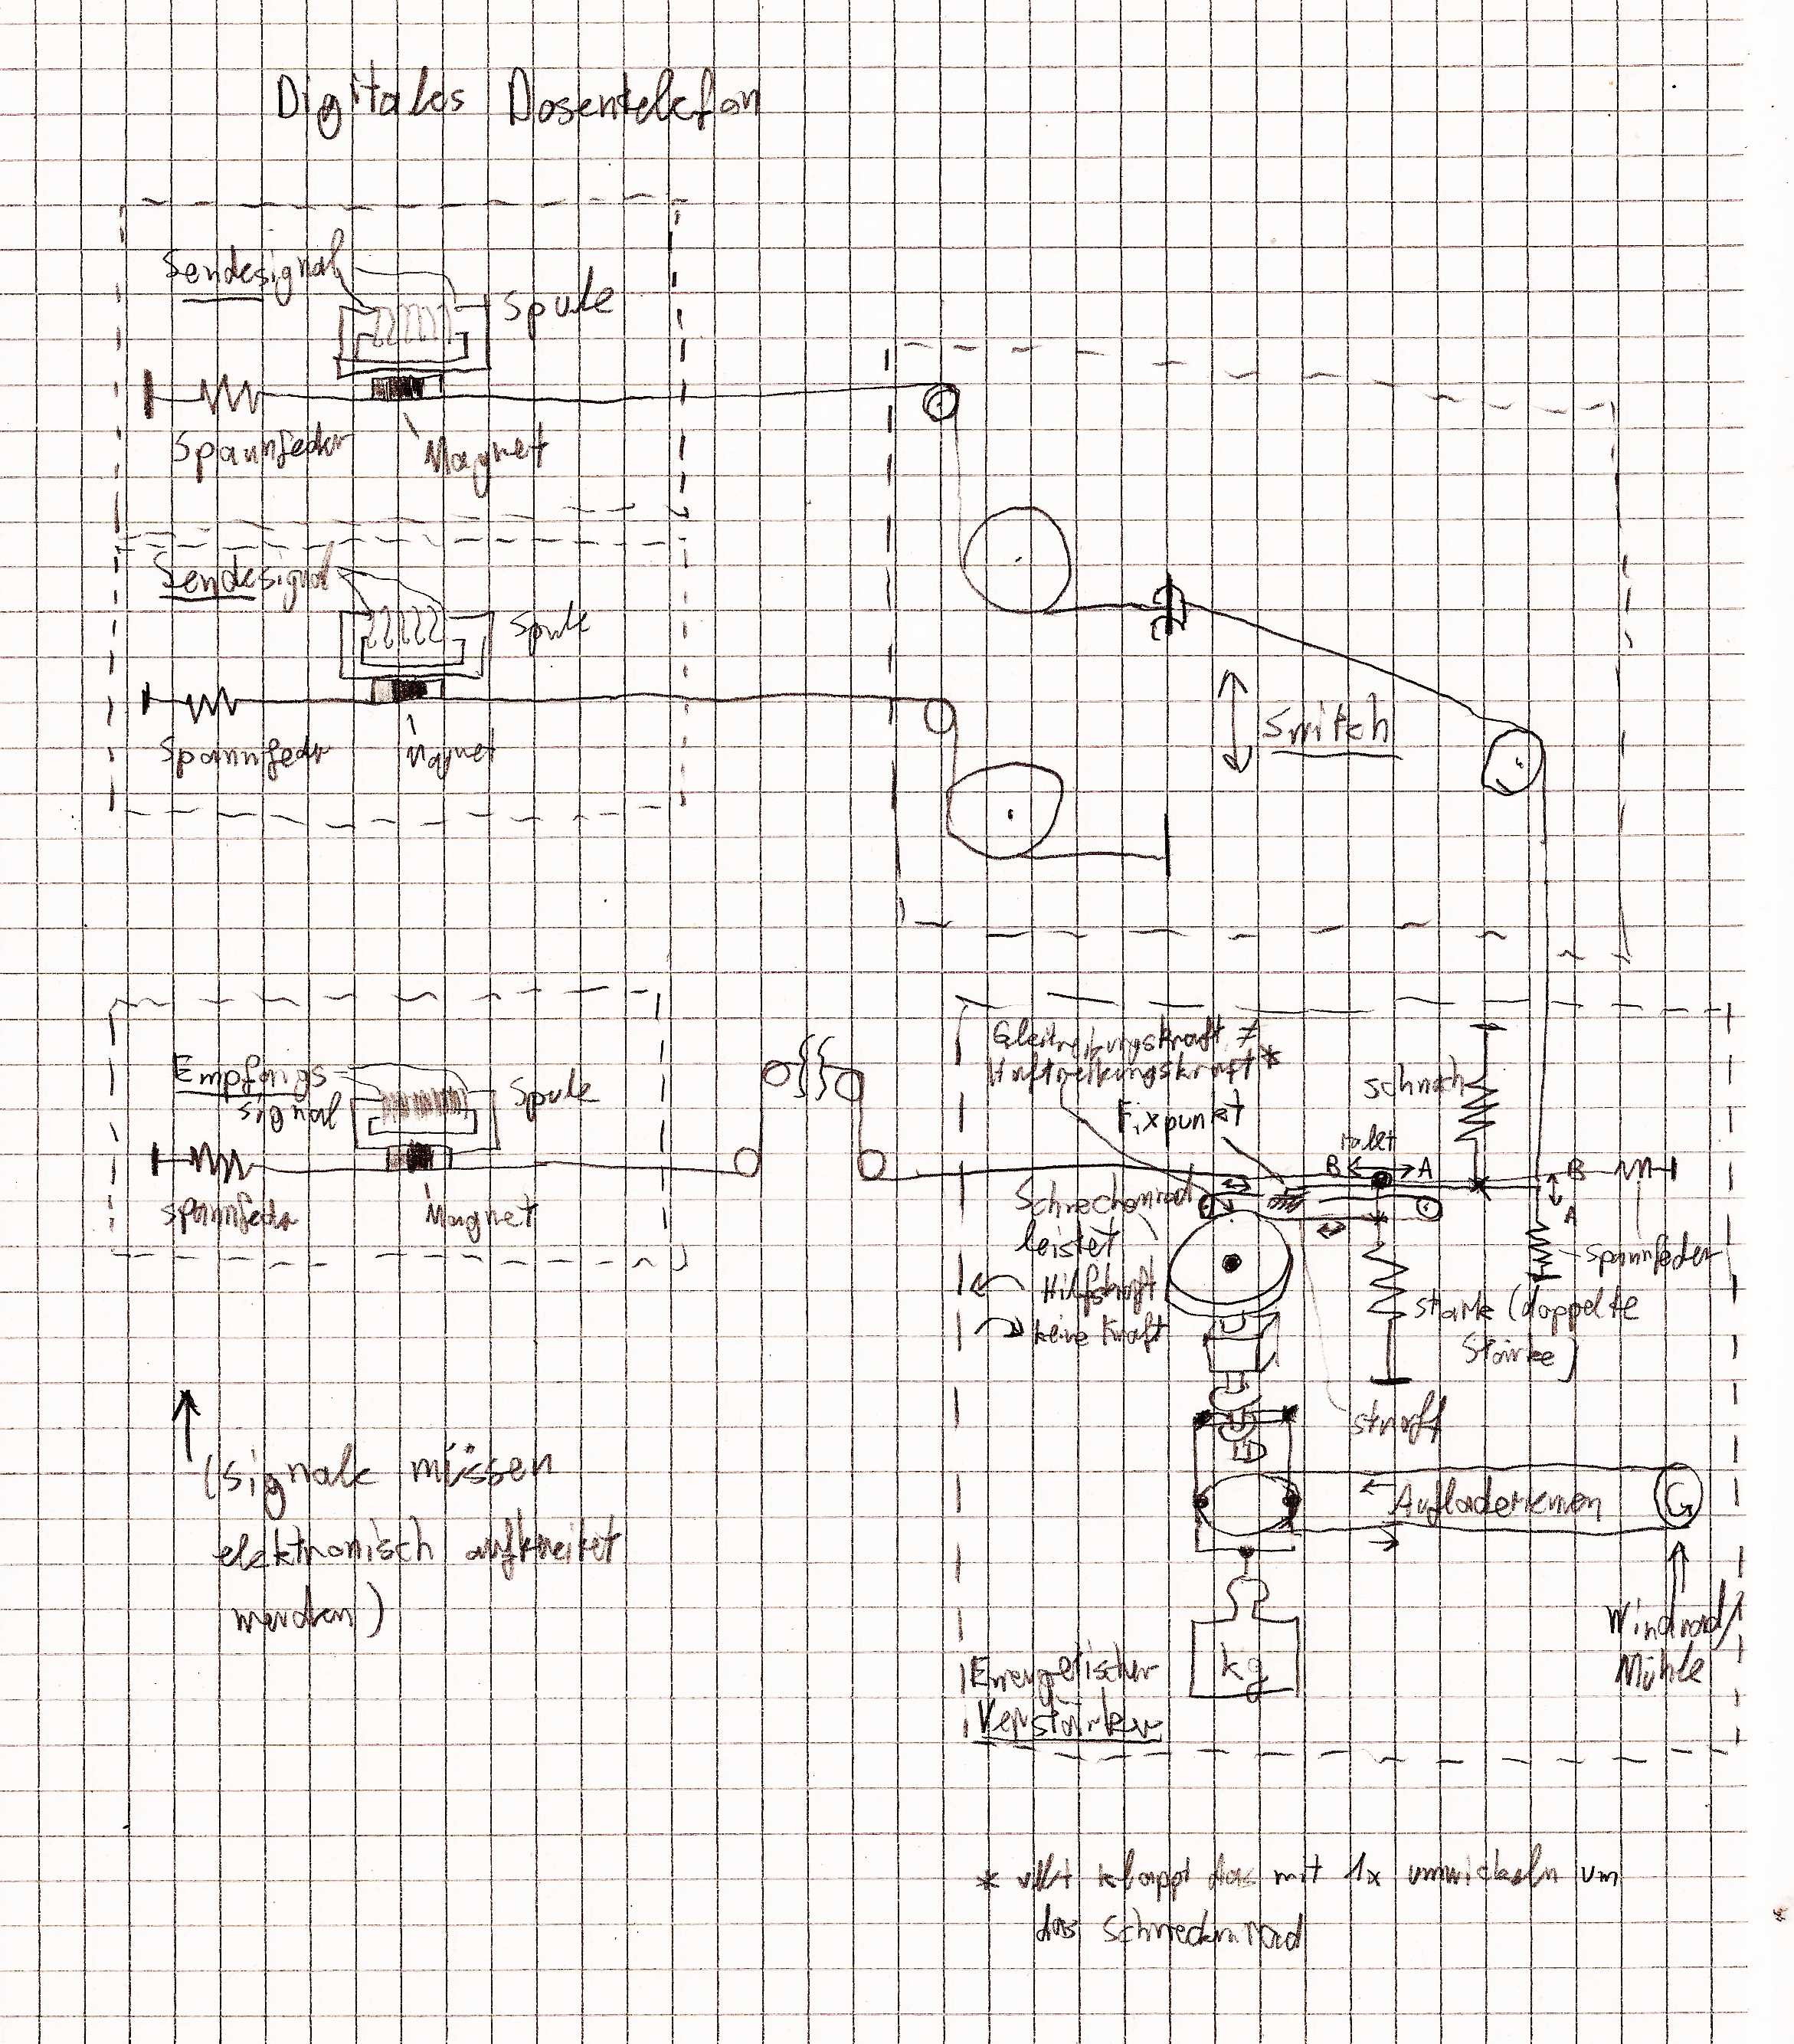 Digitales Dosentelefon
Sendesignal
Spule
Spannfeder
Magnet
Sendesignal
Spule
Spannfeder
Magnet
Switch
Empfangs
signal
Spule
Spannfeder
Magnet
Gleitreibungskraft ≠
Haftreibungskraft *
Fixpunkt
schwach
B A
B
A
Schneckenrad
leistet
Hilfskraft
keine Kraft
Spannfeder
stark (doppelte
Stärke)
straff
Aufladeriemen
G
Windrad/
Mühle
kg
Energetischer
Verstärker
(Signale müssen
elektronisch aufbereitet
werden)
* vllt klappt das mit 1x umwickeln um
das Schneckenrad